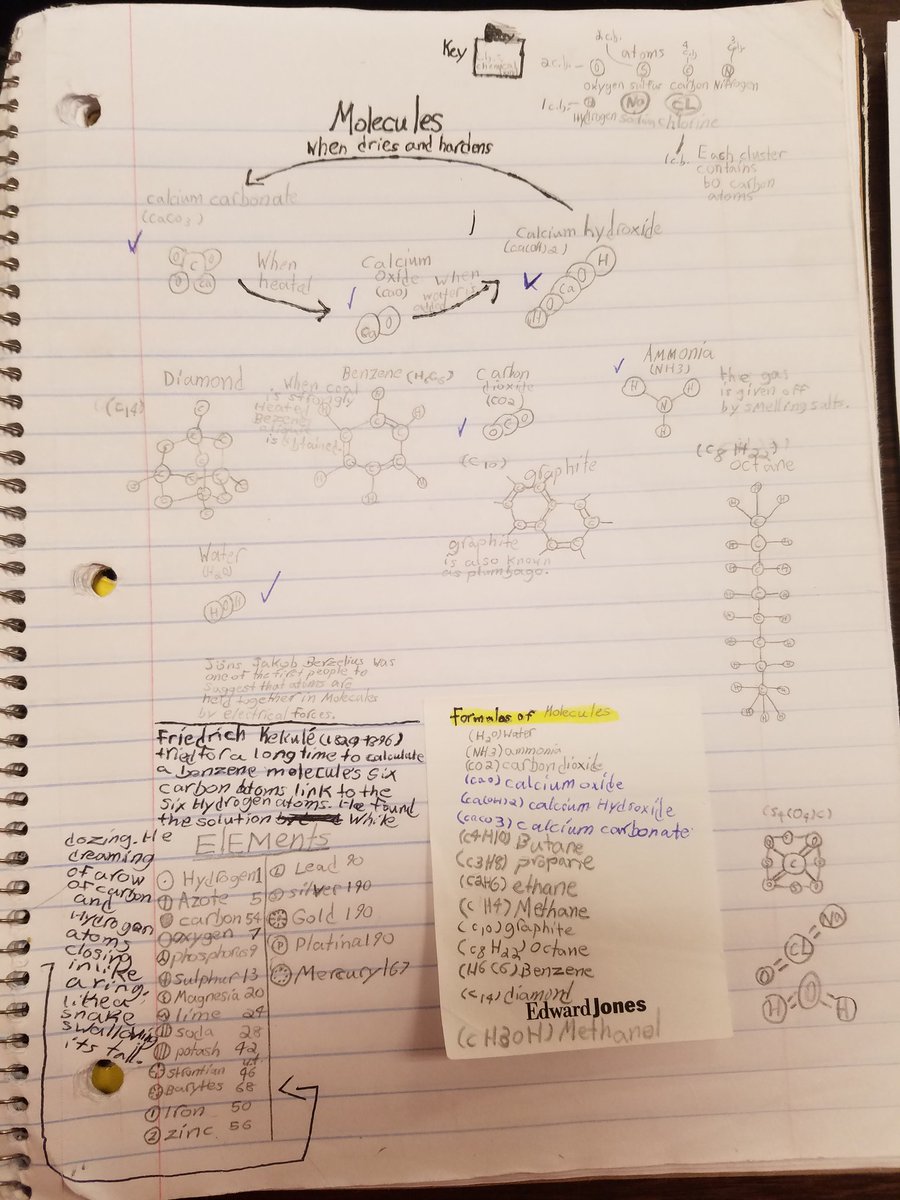 Key
atoms
2 c.b. O S C N
oxygen sulfur carbon Nitrogen
1 c.b. H Na CL
Hydrogen Sodium chlorine
1 c.b.
Each cluster
contains
60 carbon
atoms
Molecules
When dries and hardens
calcium carbonate
(CaCO3)
O C O
O Ca
When
heated
Calcium
Oxide
(CaO)
Ca O
When
water is
added
Calcium hydroxide
(Ca(OH)2)
H O Ca O H
Diamond
(C14)
When coal
is strongly
Heated
is obtained.
Benzene (H6C6)
Carbon
dioxide
(CO2)
O C O
Ammonia
(NH3)
H H
N
H
the gas
is given off
by smelling salts.
(C10)
graphite
graphite
is also known
as plumbago.
(C8H22)
octane
Water
(H2O)
H O H
Jöns Jakob Berzelius was
one of the first people to
suggest that atoms are
held together in Molecules
by electrical forces.
Friedrich Kekulé (1829-1896)
tried for a long time to calculate
a benzene molecules six
carbon atoms link to the
six Hydrogen atoms. He found
the solution While
dozing. He
dreaming
of a row
of carbon
and
Hydrogen
atoms
closing
in like
a ring.
like a
snake
swallowing
its tail.
ELEMENTS
Hydrogen 1
Azote 5
carbon 54
oxygen 7
phosphorus 9
Sulphur 13
Magnesia 20
lime 24
soda 28
potash 42
Strontian 46
Barytes 68
Iron 50
zinc 56
Lead 90
silver 190
Gold 190
Platina 190
Mercury 167
Formulas of Molecules
(H2O) Water
(NH3) ammonia
(CO2) carbon dioxide
(CaO) calcium oxide
(Ca(OH)2) calcium Hydroxide
(CaCO3) calcium carbonate
(C4H10) Butane
(C3H8) propane
(C2H6) ethane
(CH4) Methane
(C10) graphite
(C8H22) Octane
(H6C6) Benzene
(C14) diamond
Edward Jones
(CH3OH) Methanol
(S4(O4)C)
C
O CL Na
H O H